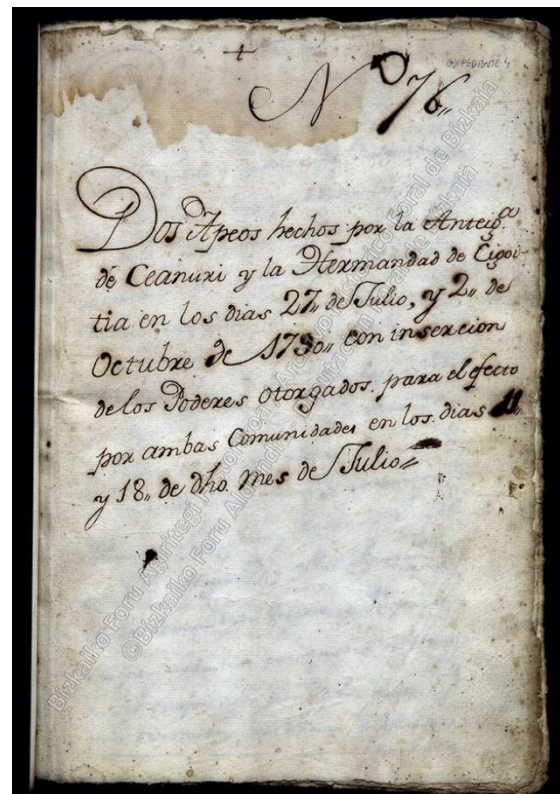 +
EXPEDIENTE 4
Nº 76,,
Dos Apeos hechos por la Anteigª
de Ceanuri y la Hermandad de Cigoi-
tia en los dias 27,, de Julio, y 2,, de
Octubre de 1730,, con insercion
de los Poderes otorgados para el efecto
por ambas Comunidades en los dias 11,,
y 18,, de dho. mes de Julio=
Bizkaiko Foru Agiritegi Historikoa
Archivo Histórico Foral de Bizkaia
©Bizkaiko Foru Aldundia
Diputación Foral de Bizkaia